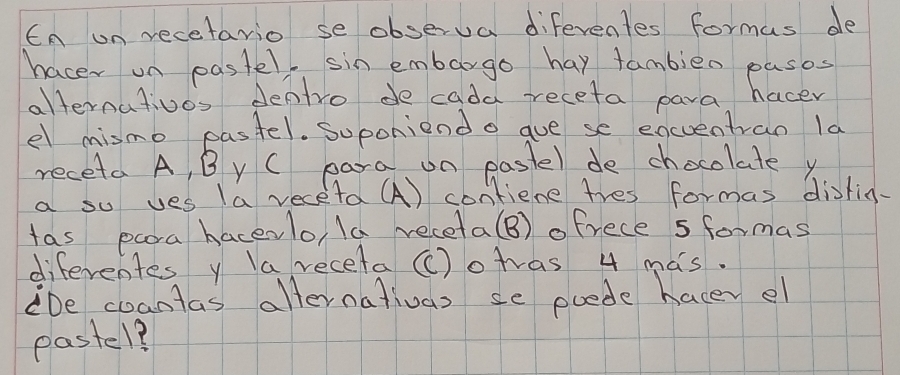 En un recetario se observa diferentes formas de
hacer un pastel, sin embargo hay tambien pasos
alternativos dentro de cada receta para hacer
el mismo pastel. Suponiendo que se encuentran la
receta A, B y C para un pastel de chocolate y
a su ves la receta (A) contiene tres formas distin-
tas para hacerlo, la receta (B) ofrece 5 formas
diferentes y la receta (C) otras 4 más.
¿De cuantas alternativas se puede hacer el
pastel?